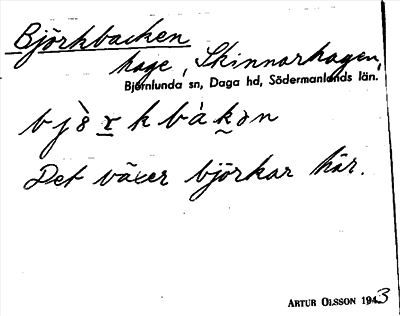 Björkbacken
hage, Skinnarhagen,
Björnlunda sn, Daga hd, Södermanlands län.
Det växer björkar här.
ARTUR OLSSON 1943